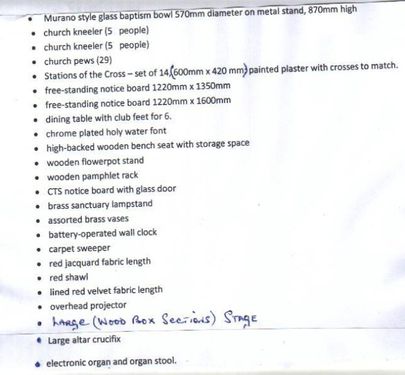 • Murano style glass baptism bowl 570mm diameter on metal stand, 870mm high
• church kneeler (5 people)
• church kneeler (5 people)
• church pews (29)
• Stations of the Cross – set of 14,(600mm x 420 mm)painted plaster with crosses to match.
• free-standing notice board 1220mm x 1350mm
• free-standing notice board 1220mm x 1600mm
• dining table with club feet for 6.
• chrome plated holy water font
• high-backed wooden bench seat with storage space
• wooden flowerpot stand
• wooden pamphlet rack
• CTS notice board with glass door
• brass sanctuary lampstand
• assorted brass vases
• battery-operated wall clock
• carpet sweeper
• red jacquard fabric length
• red shawl
• lined red velvet fabric length
• overhead projector
• LARGE (WOOD BOX SECTIONS) STAGE
• Large altar crucifix
• electronic organ and organ stool.